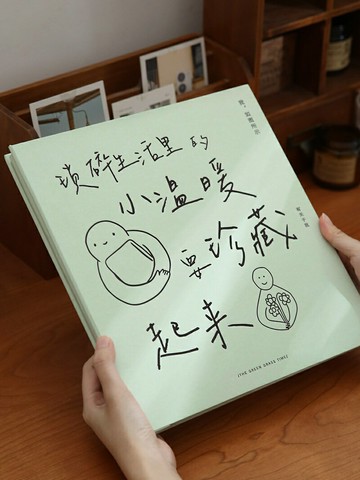 瑣碎生活里的
小溫暖
要珍藏
起来
(THE GREEN GRASS TIMES)